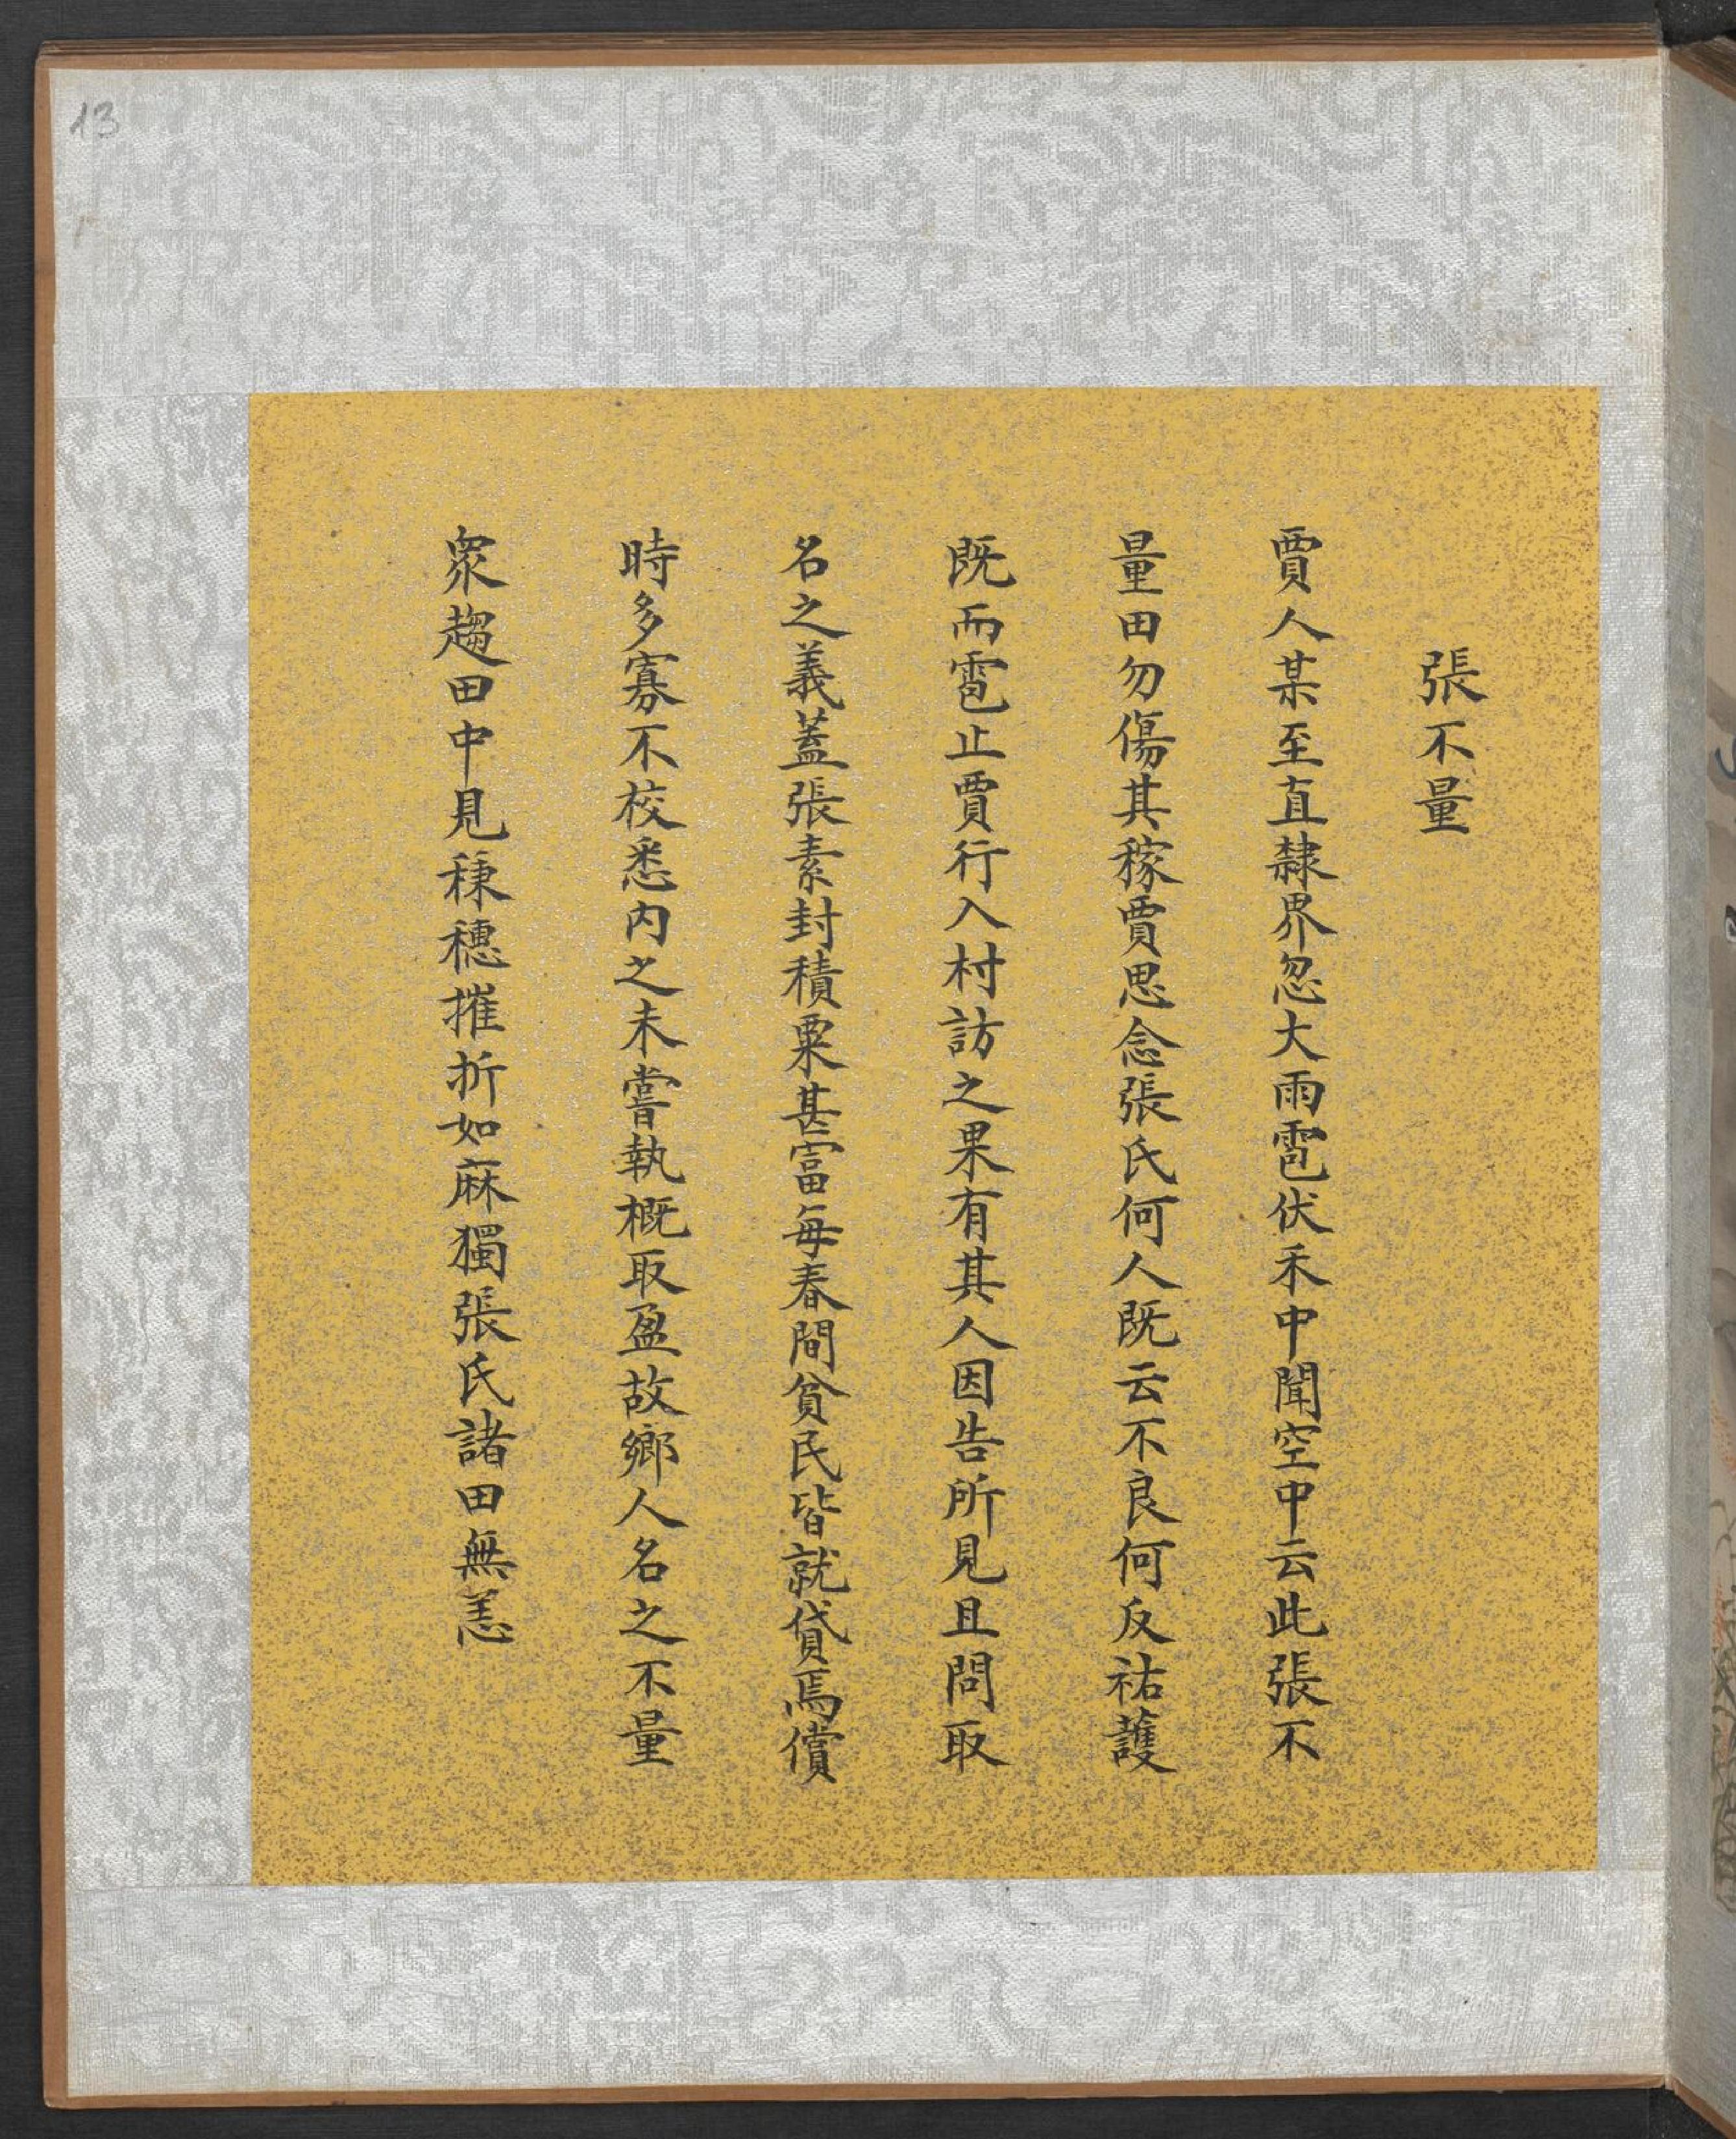 13
張不量
賈人某至直隸界忽大雨雹伏禾中聞空中云此張不
量田勿傷其稼賈思念張氏何人既云不良何反祐護
既而雹止賈行入村訪之果有其人因告所見且問取
名之義蓋張素封積粟甚富每春間貧民皆就貸焉償
時多寡不校悉內之未嘗執概取盈故鄉人名之不量
衆趨田中見稞穗摧折如麻獨張氏諸田無恙